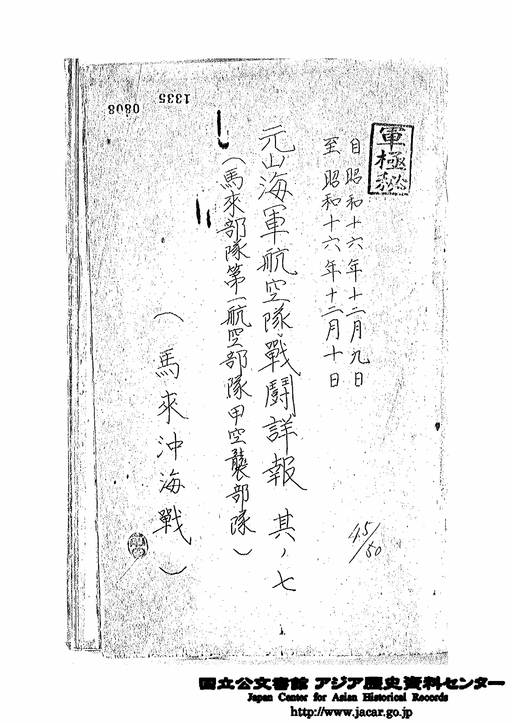 軍極秘
自昭和十六年十二月九日
至昭和十六年十二月十日
元山海軍航空隊戰鬪詳報 其ノ七
(馬來部隊第一航空部隊甲空襲部隊)
(馬來沖海戰)
45/50
0808 1335
国立公文書館 アジア歴史資料センター
Japan Center for Asian Historical Records
http://www.jacar.go.jp